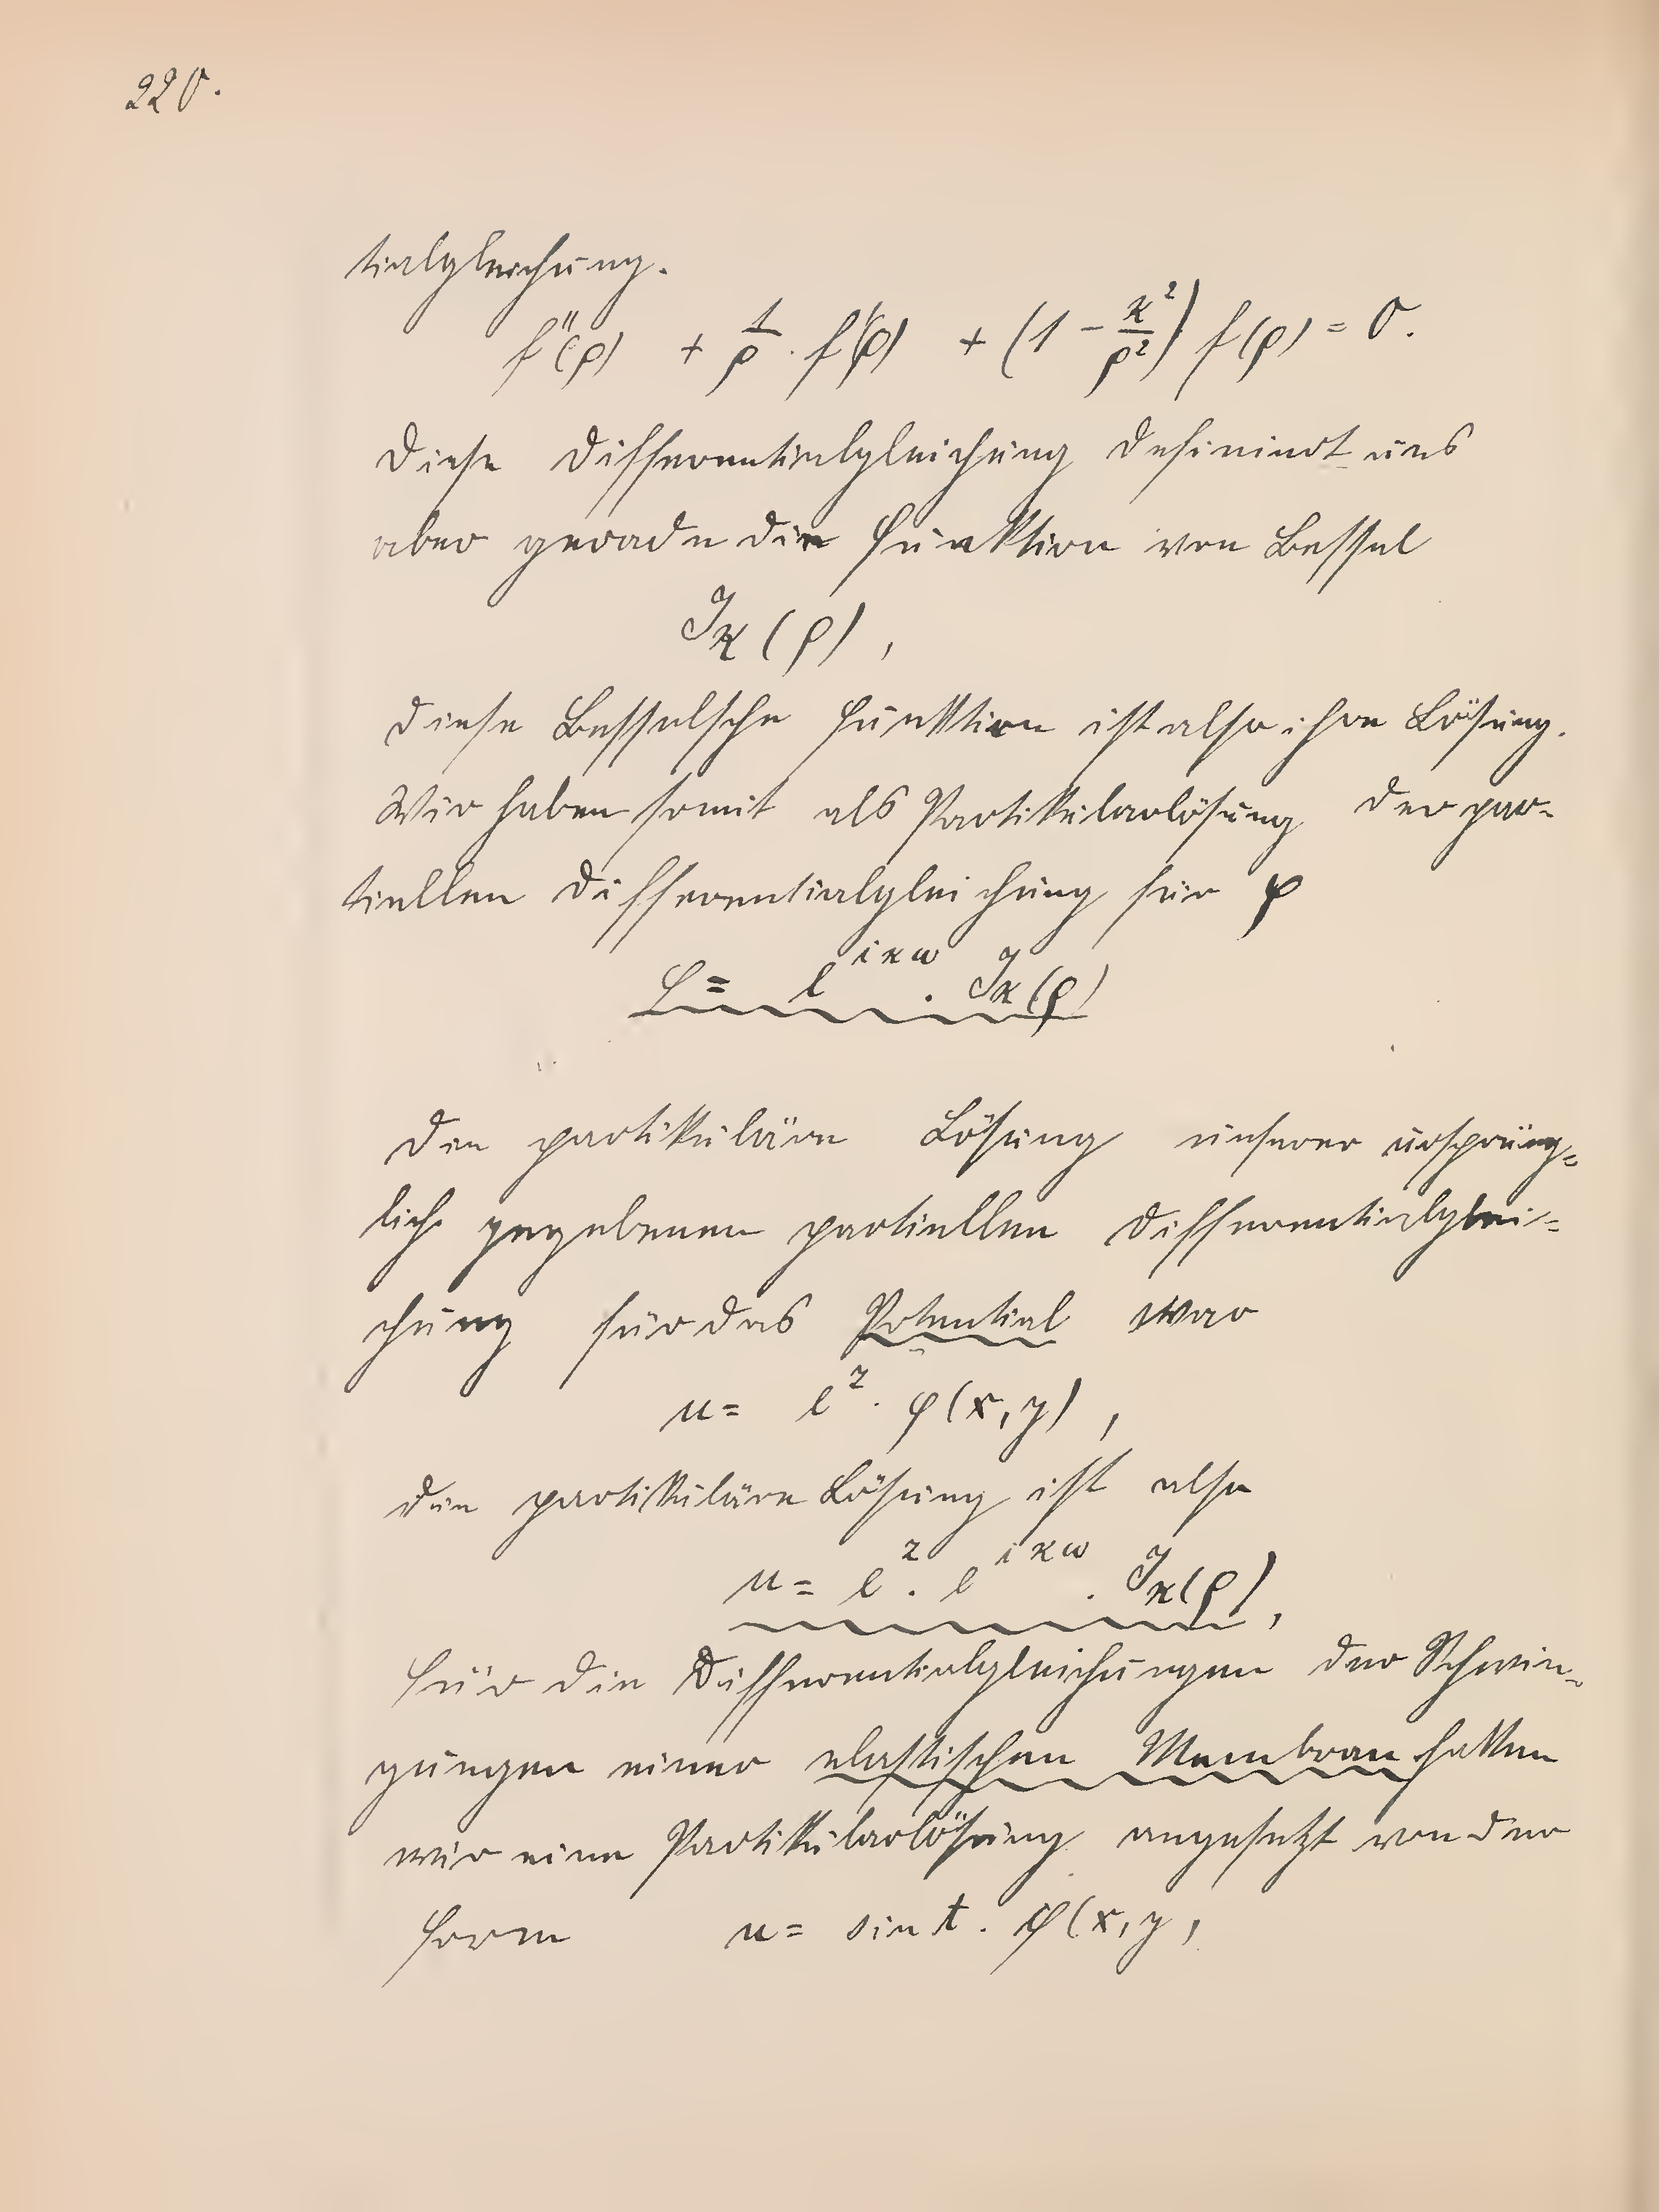 220.
tialgleichung.
f''(ρ) + 1/ρ · f'(ρ) + (1 − ϰ²/ρ²) f(ρ) = 0.
Diese Differentialgleichung definiert uns
aber gerade die Funktion von Bessel
Jϰ(ρ),
diese Besselsche Funktion ist also ihre Lösung.
Wir haben somit als Partikularlösung der par-
tiellen Differentialgleichung für φ
φ = e^{iϰω} · Jϰ(ρ)
Die partikuläre Lösung unserer ursprüng=
lich gegebenen partiellen Differentialglei=
chung für das Potential war
u = e^z · φ(x, y),
die partikuläre Lösung ist also
u = e^z · e^{iϰω} · Jϰ(ρ),
Für die Differentialgleichungen der Schwin=
gungen einer elastischen Membran hatten
wir eine Partikularlösung angesetzt von der
Form u = sin t · φ(x, y,